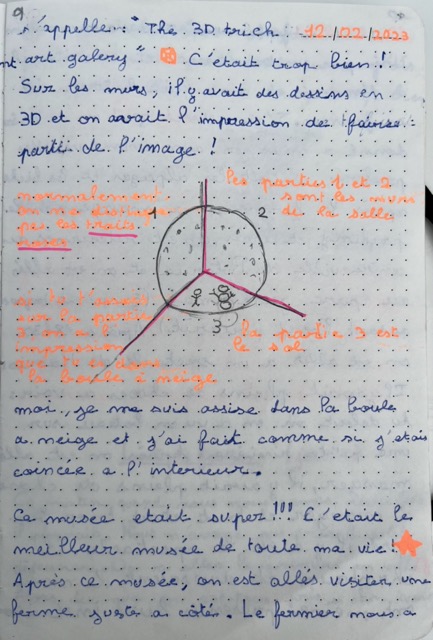 9
s'appelle : "The 3D trick 12/02/2023
nt art galery" C'était trop bien !
Sur les murs, il y avait des dessins en
3D et on avait l'impression de faire
parti de l'image !
normalement
on ne distingue
pas les traits
roses
les parties 1 et 2
sont les murs
de la salle
1
2
3
si tu t'assois
sur la partie
3, on a l'
impression
que tu es dans
la boule à neige
la partie 3 est
le sol
moi, je me suis assise dans la boule
a neige et j'ai fait comme si j'étais
coincée a l'interieur.
Ce musée etait super !!! C'était le
meilleur musée de toute ma vie !
Après ce musée, on est allés visiter une
ferme juste a côté. Le fermier nous a